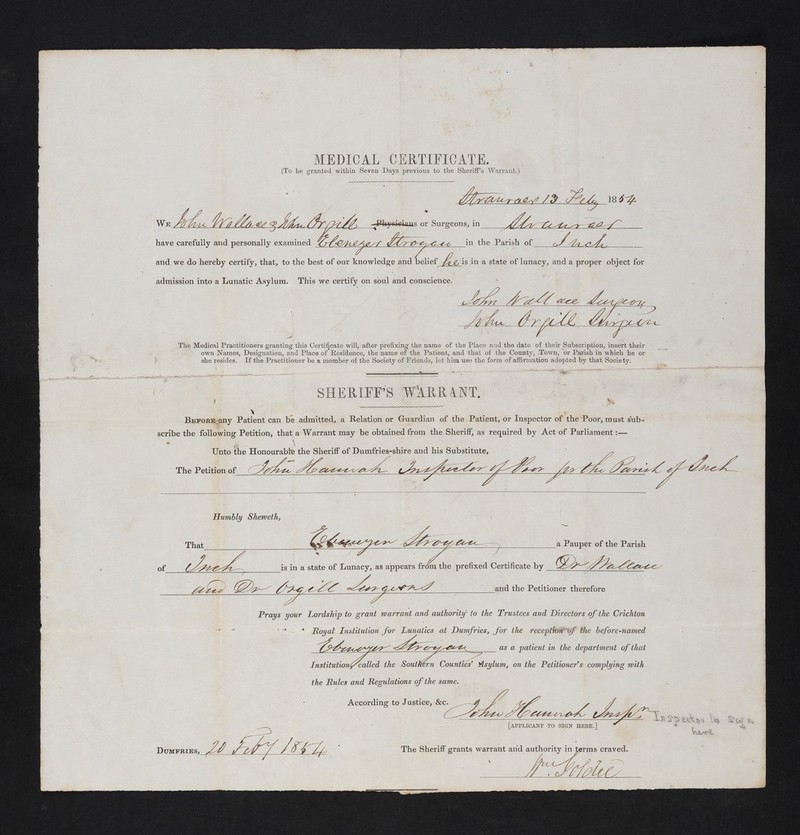 MEDICAL CERTIFICATE.
(To be granted within Seven Days previous to the Sheriff's Warrant.)
Stranraer 13 Feby 1854
WE John Wallace & John Orgill Physicians or Surgeons, in Stranraer
have carefully and personally examined Ebenezer Strogan in the Parish of Inch
and we do hereby certify, that, to the best of our knowledge and belief he is in a state of lunacy, and a proper object for
admission into a Lunatic Asylum. This we certify on soul and conscience.
John Wallace Surgeon
John Orgill Surgeon
The Medical Practitioners granting this Certificate will, after prefixing the name of the Place and the date of their Subscription, insert their
own Names, Designation, and Place of Residence, the name of the Patient, and that of the County, Town, or Parish in which he or
she resides. If the Practitioner be a member of the Society of Friends, let him use the form of affirmation adopted by that Society.
SHERIFF'S WARRANT.
BEFORE any Patient can be admitted, a Relation or Guardian of the Patient, or Inspector of the Poor, must sub-
scribe the following Petition, that a Warrant may be obtained from the Sheriff, as required by Act of Parliament :—
Unto the Honourable the Sheriff of Dumfries-shire and his Substitute,
The Petition of John Hannah Inspector of Poor for the Parish of Inch
Humbly Sheweth,
That Ebenezer Strogan a Pauper of the Parish
of Inch is in a state of Lunacy, as appears from the prefixed Certificate by Dr Wallace
and Dr Orgill Surgeons and the Petitioner therefore
Prays your Lordship to grant warrant and authority to the Trustees and Directors of the Crichton
Royal Institution for Lunatics at Dumfries, for the reception of the before-named
Ebenezer Strogan as a patient in the department of that
Institution, called the Southern Counties' Asylum, on the Petitioner's complying with
the Rules and Regulations of the same.
According to Justice, &c.
John Hannah Inspr.
[APPLICANT TO SIGN HERE.]
Inspector to sign
here
DUMFRIES, 20 Feby 1854
The Sheriff grants warrant and authority in terms craved.
Wm. Goldie